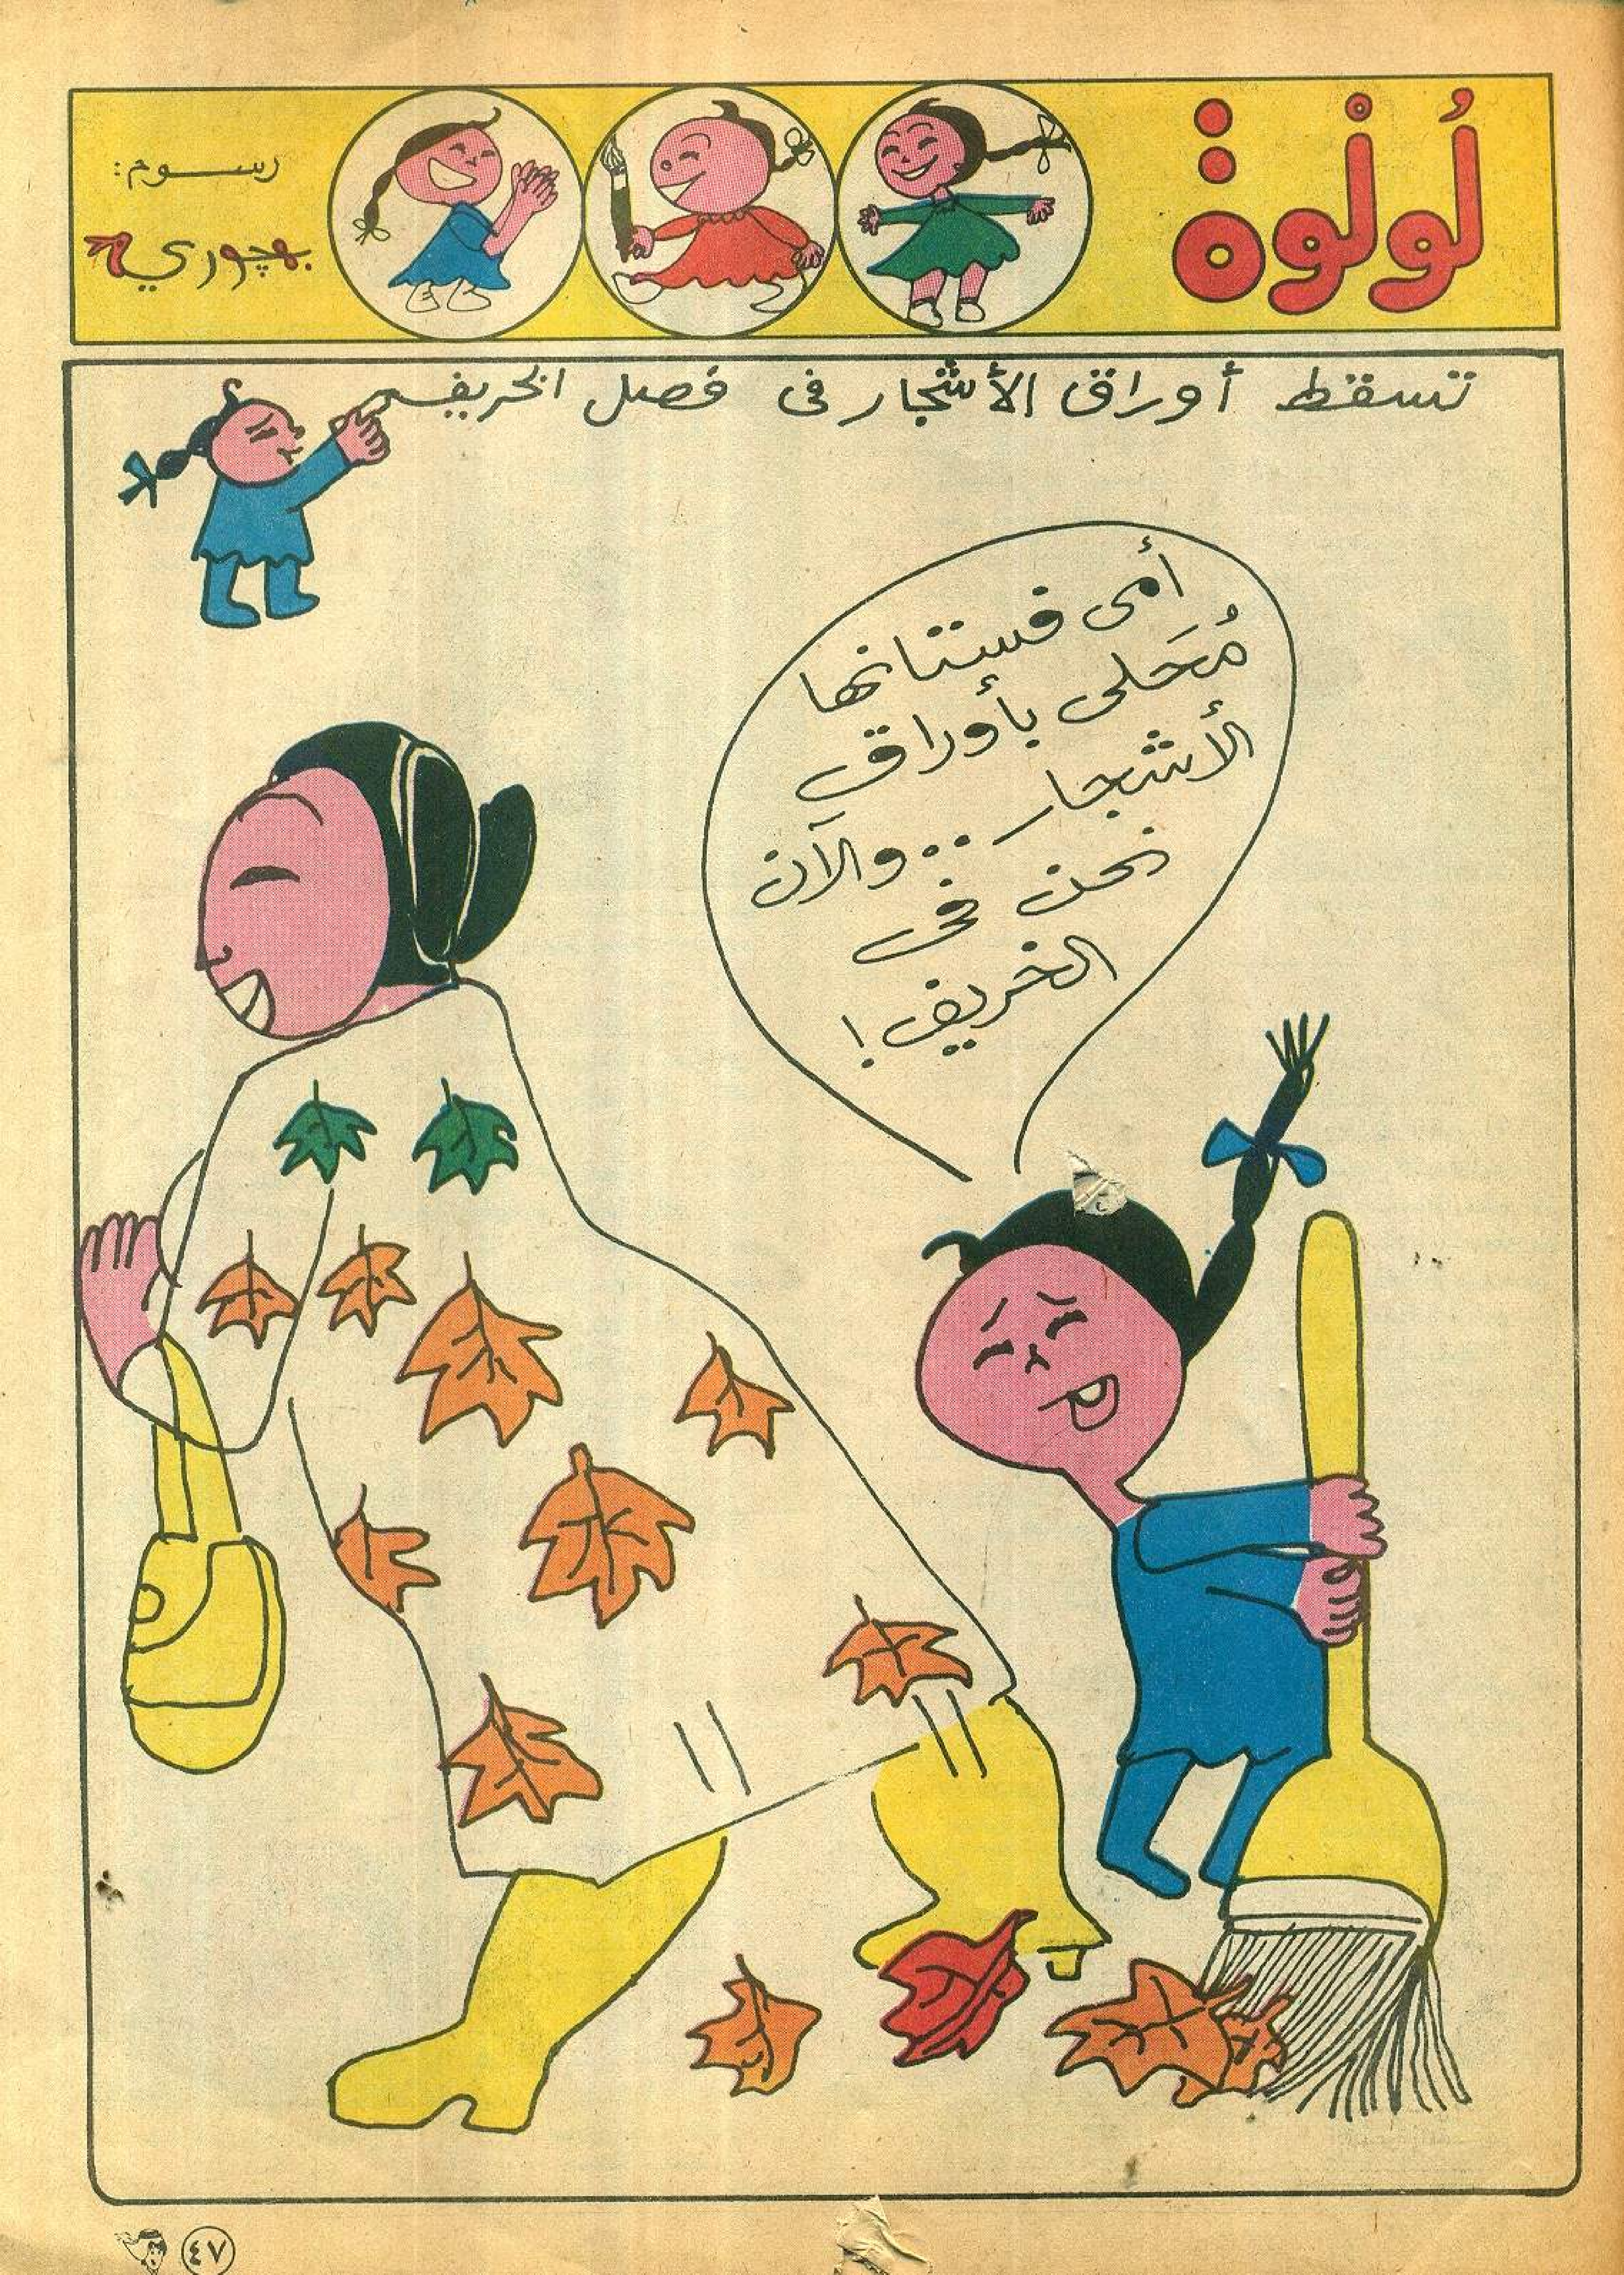 لُولْوة
رسوم:
بهچوري
تسقط أوراق الأشجار في فصل الخريف
أمى فستانها
مُحَلى بأوراق
الأشجار .. والآن
نحن في
الخريف !
٤٧